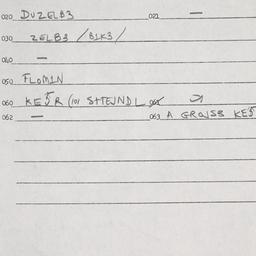 020 DUZELB3 021 —
030 ZELB3 /B1K3/
040 —
050 FLOM1N
060 KE5R (101 STTEJNDL 061
062 — 063 A GROJSS KE5